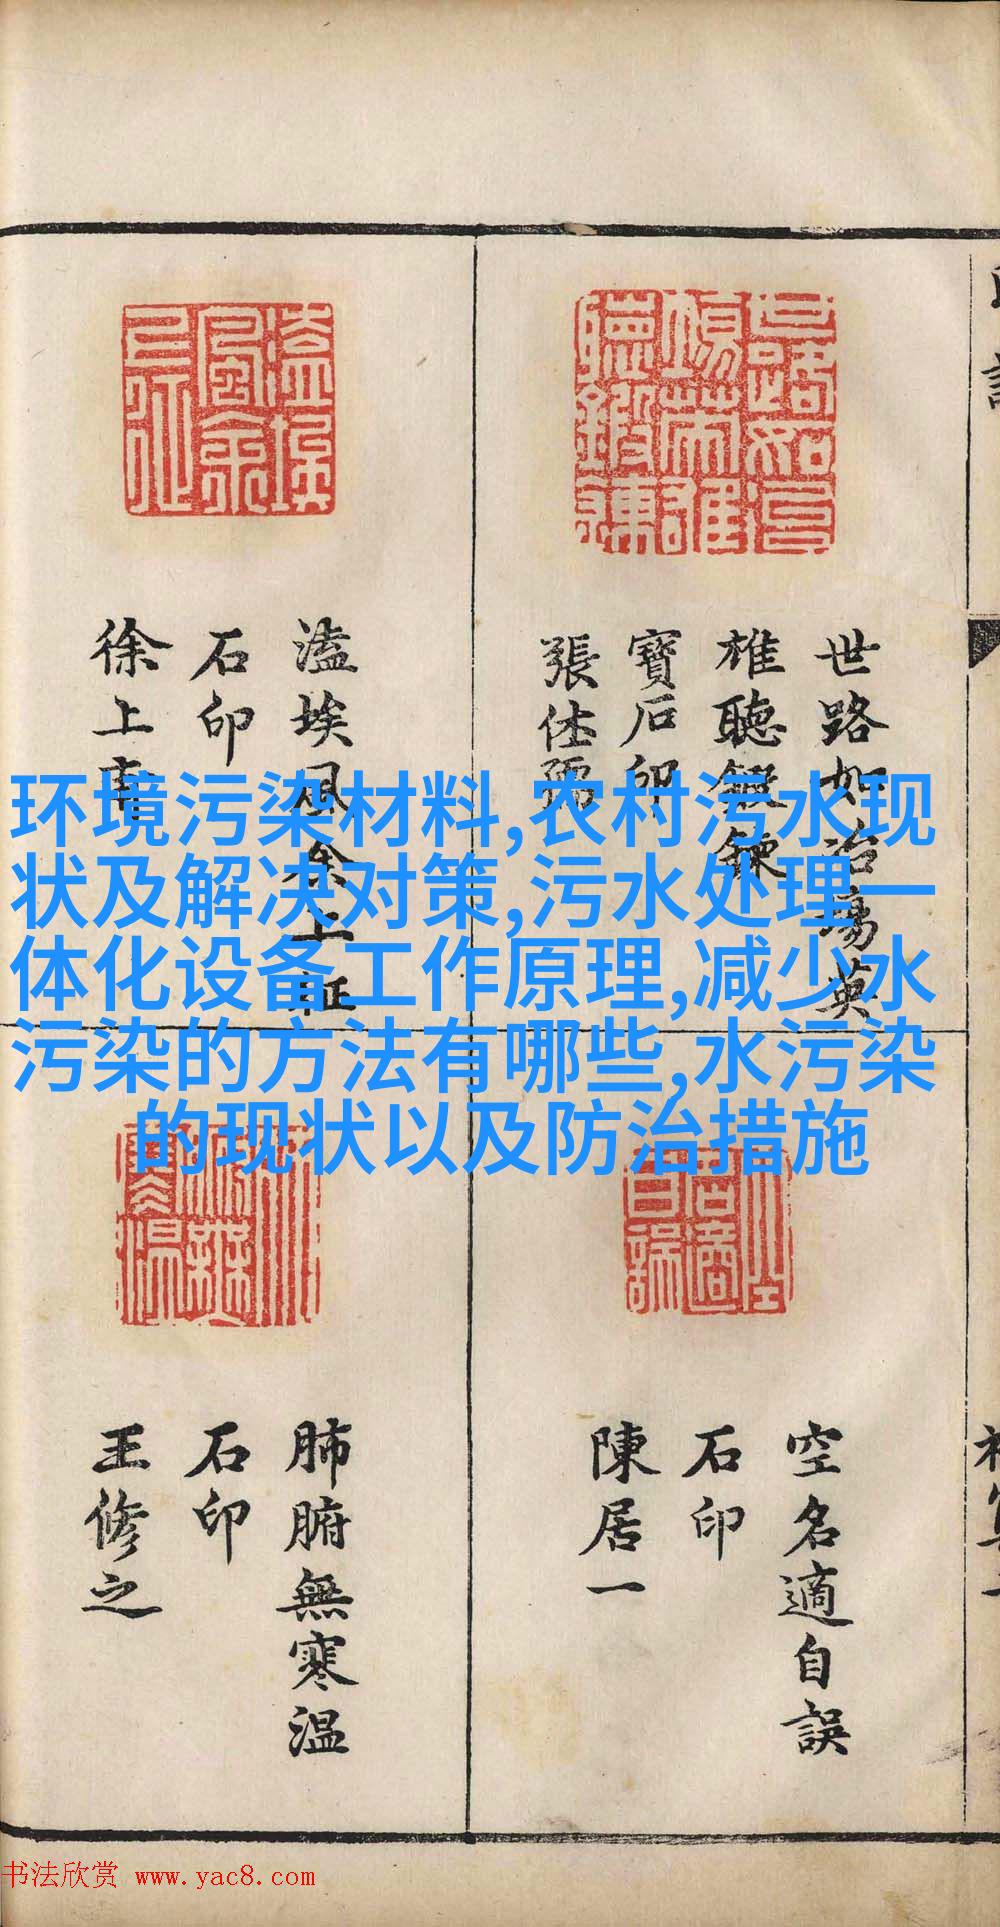 环境污染材料,农村污水现
状及解决对策,污水处理一
体化设备工作原理,减少水
污染的方法有哪些,水污染
的现状以及防治措施
世路如冶場英
雄聽鍛鍊
寶石印
張
溘埃風余上征
石印
徐上
空名適自誤
石印
陳居一
肺腑無寒溫
石印
王修之
书法欣赏 www.yac8.com